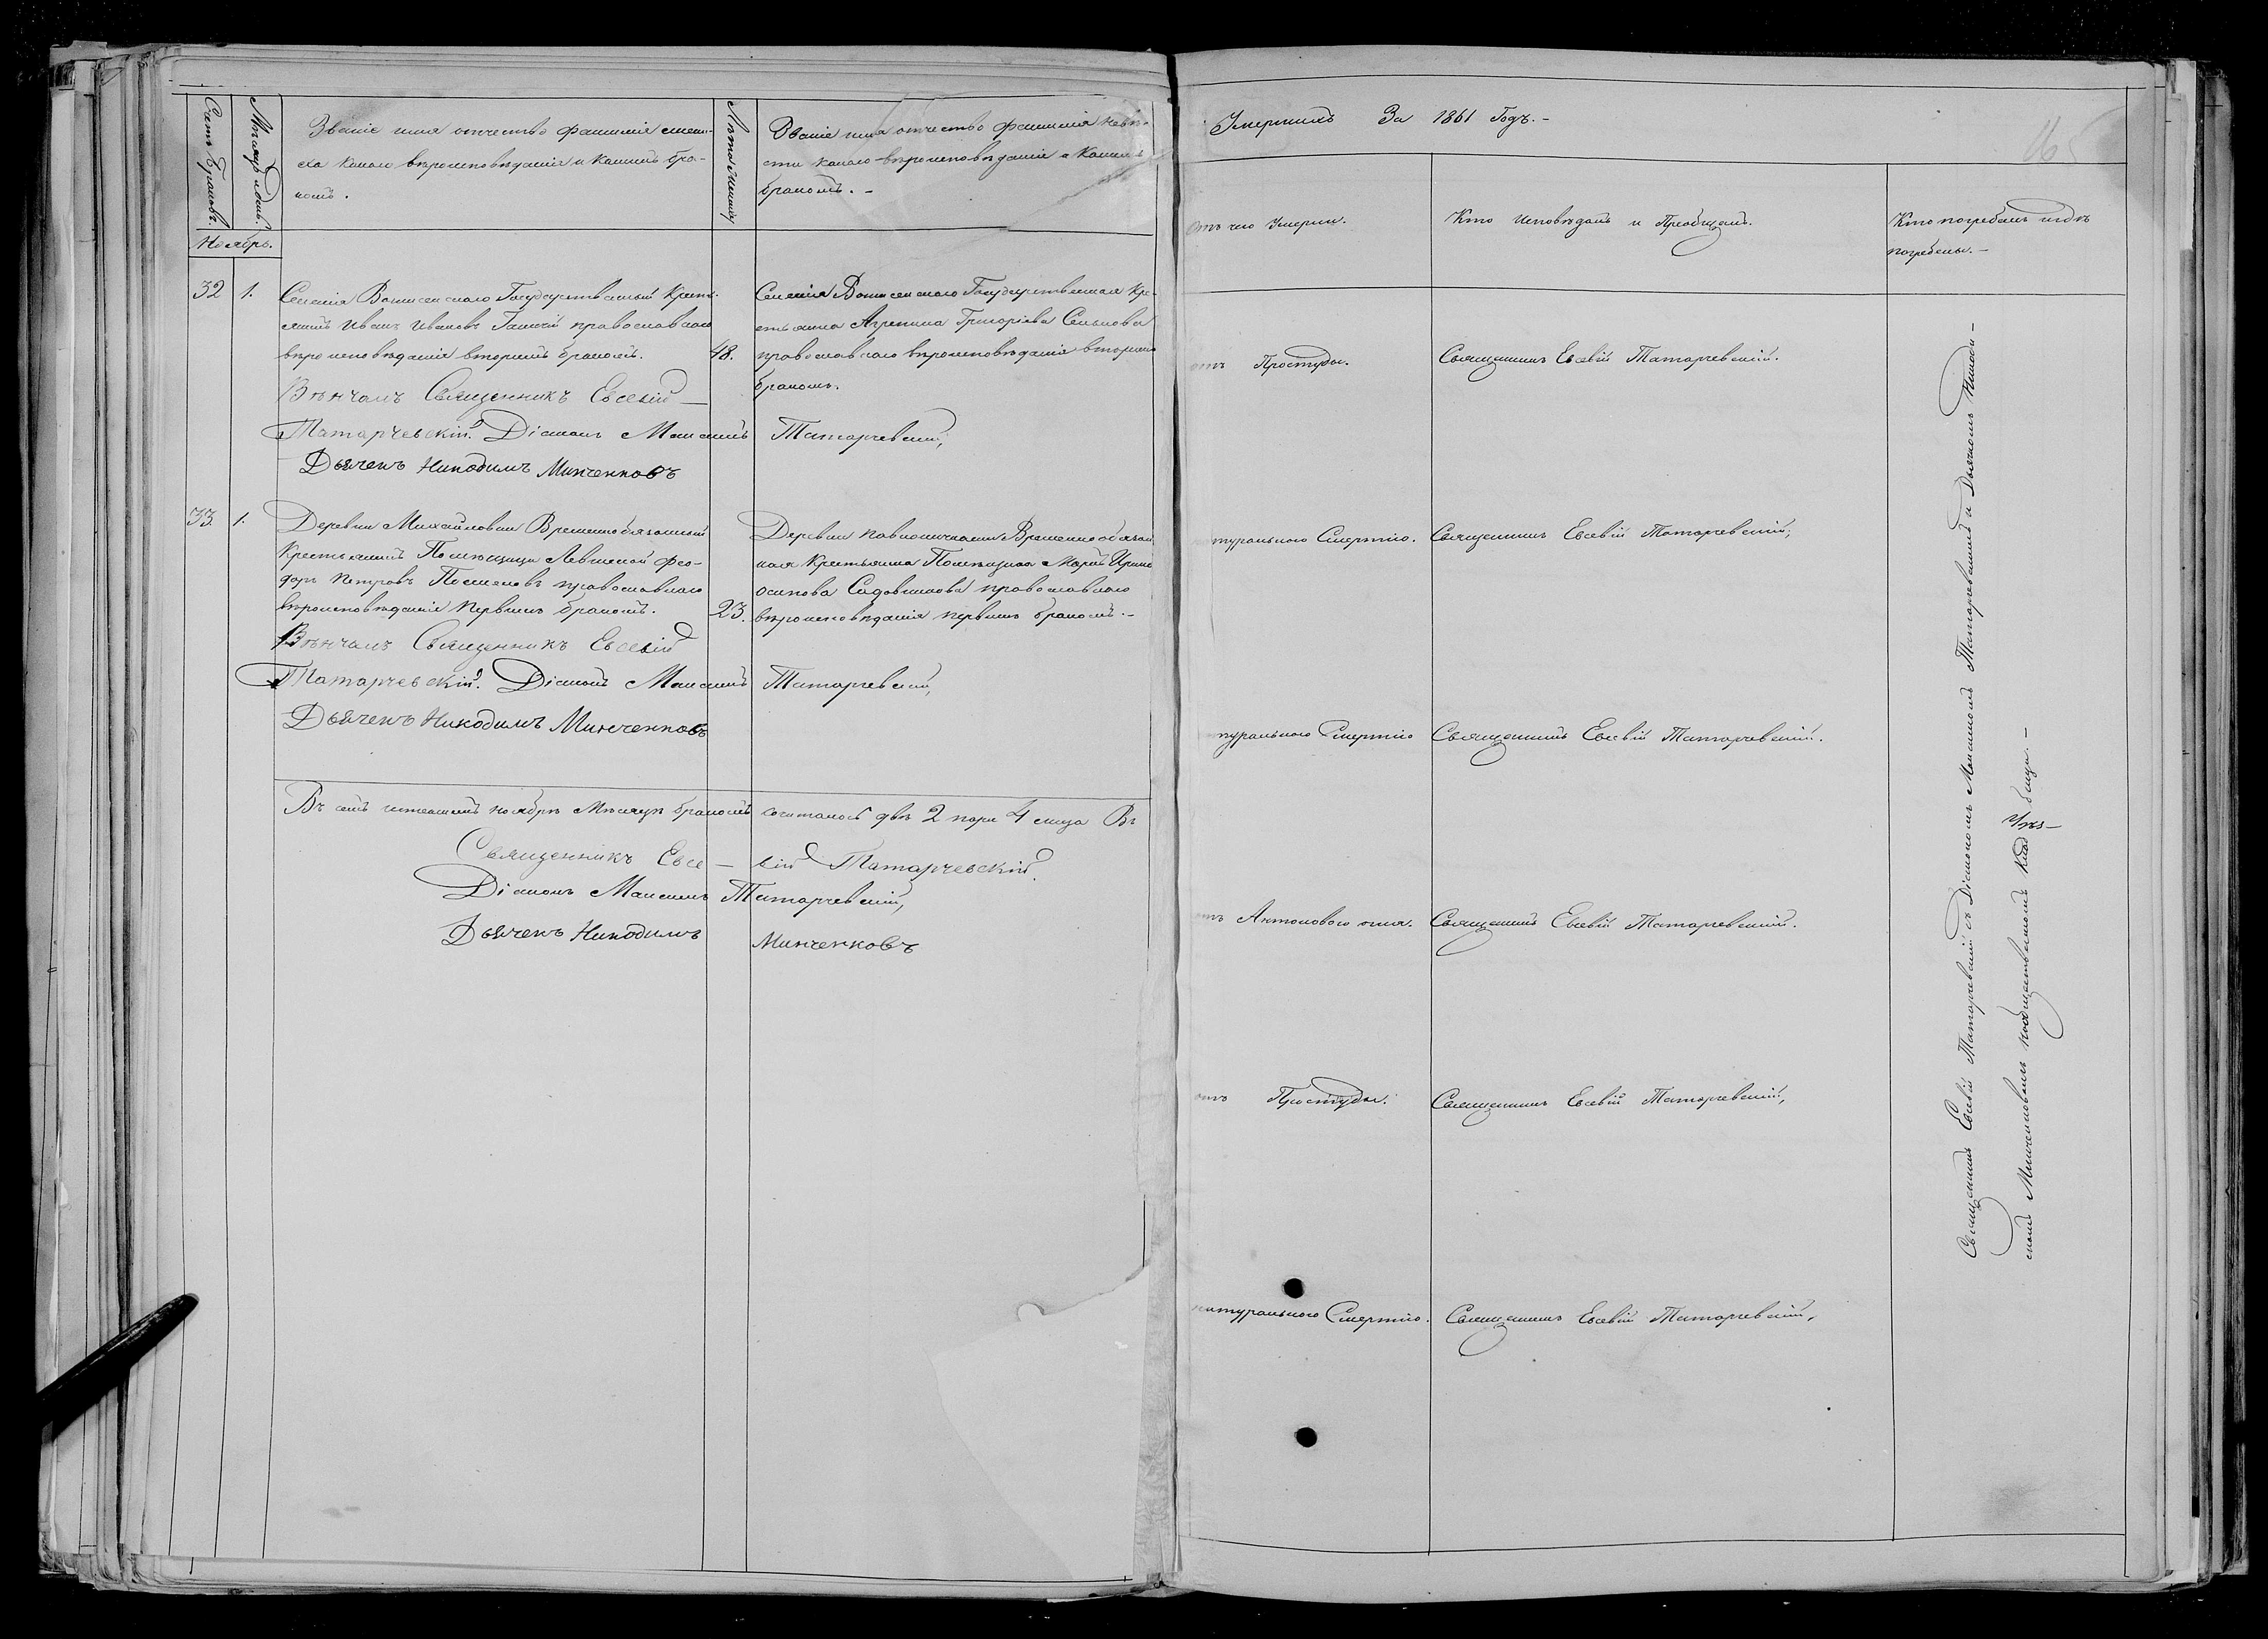 Счетъ Браковъ.
Мѣсяцъ и день.
Званіе имя отчество фамилія жени-
ха какого вѣроисповѣданія и какимъ бра-
комъ.
Лѣта Жениха
Званіе имя отчество фамилія невѣ-
сты какого вѣроисповѣданія и какимъ
бракомъ. -
Ноябрь.
32 1.
Селенія Государственный Кресть-
янинъ Иванъ Ивановъ православнаго
вѣроисповѣданія вторымъ бракомъ.
48.
Селенія Государственная Кре-
стьянка Агрепина Григоріева
православнаго вѣроисповѣданія вторымъ
бракомъ.
Вѣнчалъ Священникъ Евсевій —
Татарчевскій. Діаконъ Максимъ Татарчевскій,
Дьячекъ Никодимъ Минченковъ
33 1.
Деревни Михайловки Временнобязанный
Крестьянинъ Помѣщицы Левшиной Фео-
доръ Петровъ православнаго
вѣроисповѣданія первымъ бракомъ.
23.
Деревни Временнообязан
ная Крестьянка Помѣщика Ирина
Осипова Садовникова православнаго
вѣроисповѣданія первымъ бракомъ. -
Вѣнчалъ Священникъ Евсевій
Татарчевскій. Діаконъ Максимъ Татарчевскій,
Дьячекъ Никодимъ Минченковъ
Въ семъ ноябрѣ Мѣсяцѣ бракомъ сочиталось двѣ 2 пары 4 лица Въ
Священникъ Евсе — вій Татарчевскій.
Діаконъ Максимъ Татарчевскій,
Дьячекъ Никодимъ Минченковъ
Умершихъ За 1861 Годъ. -
Отъ чего Умерли.
Кто Исповѣдалъ и Пріобщалъ.
Кто погребалъ и гдѣ
погребены. -
отъ Простуды. Священникъ Евсевій Татарчевскій.
туральною Смертію. Священникъ Евсевій Татарчевскій,
туральною Смертію Священникъ Евсевій Татарчевскій.
отъ Антонового огня. Священникъ Евсевій Татарчевскій.
отъ Простуды. Священникъ Евсевій Татарчевскій,
натуральною Смертію. Священникъ Евсевій Татарчевскій,
Священникъ Евсевій Татарчевскій съ Діакономъ Максимомъ Татарчевскимъ и Дьячкомъ Никоди-
момъ Минченковымъ на общественномъ Кладбищѣ. -